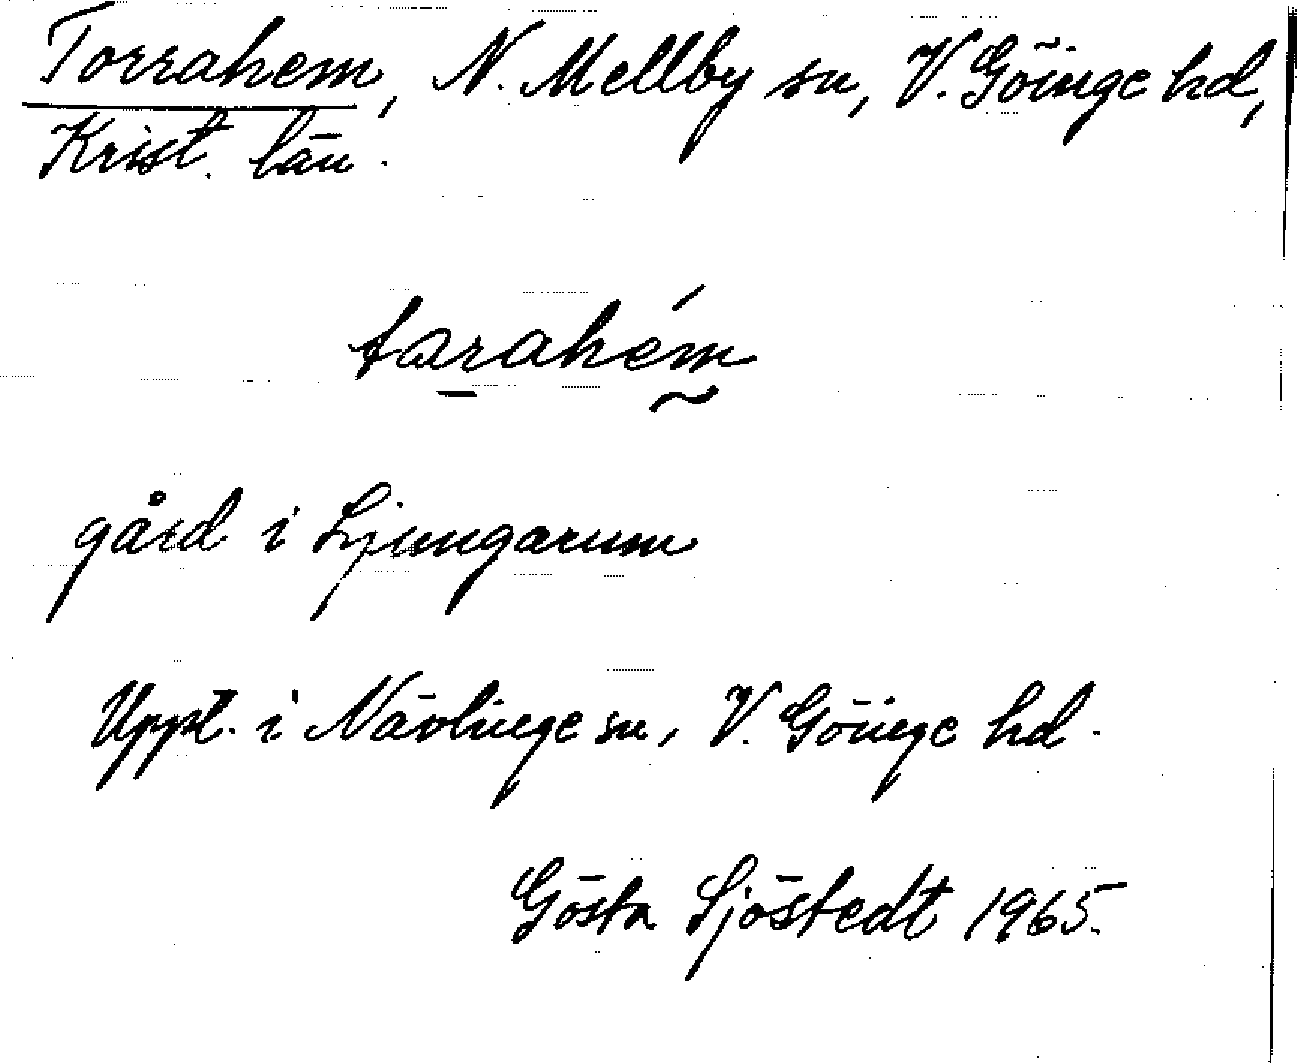 Torrahem, N. Mellby sn, V. Göinge hd,
Krist. län.
tarahém
gård i Ljungarum
Uppt. i Nävlinge sn, V. Göinge hd.
Gösta Sjöstedt 1965.